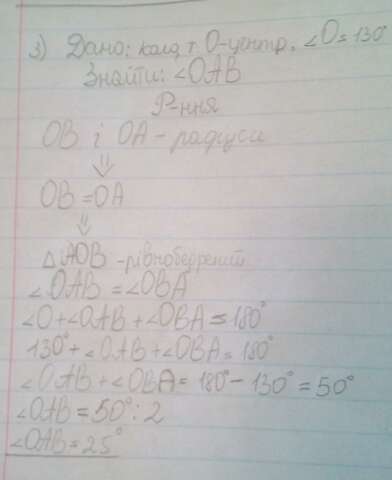 3) Дано: кола, т. О-центр. ∠O=130°
Знайти: ∠OAB
Р-ння
OB і OA - радіуси
⇓
OB=OA
⇓
△AOB - рівнобедрений
∠OAB=∠OBA
∠O+∠OAB+∠OBA=180°
130°+∠OAB+∠OBA=180°
∠OAB+∠OBA=180°-130°=50°
∠OAB=50°:2
∠OAB=25°